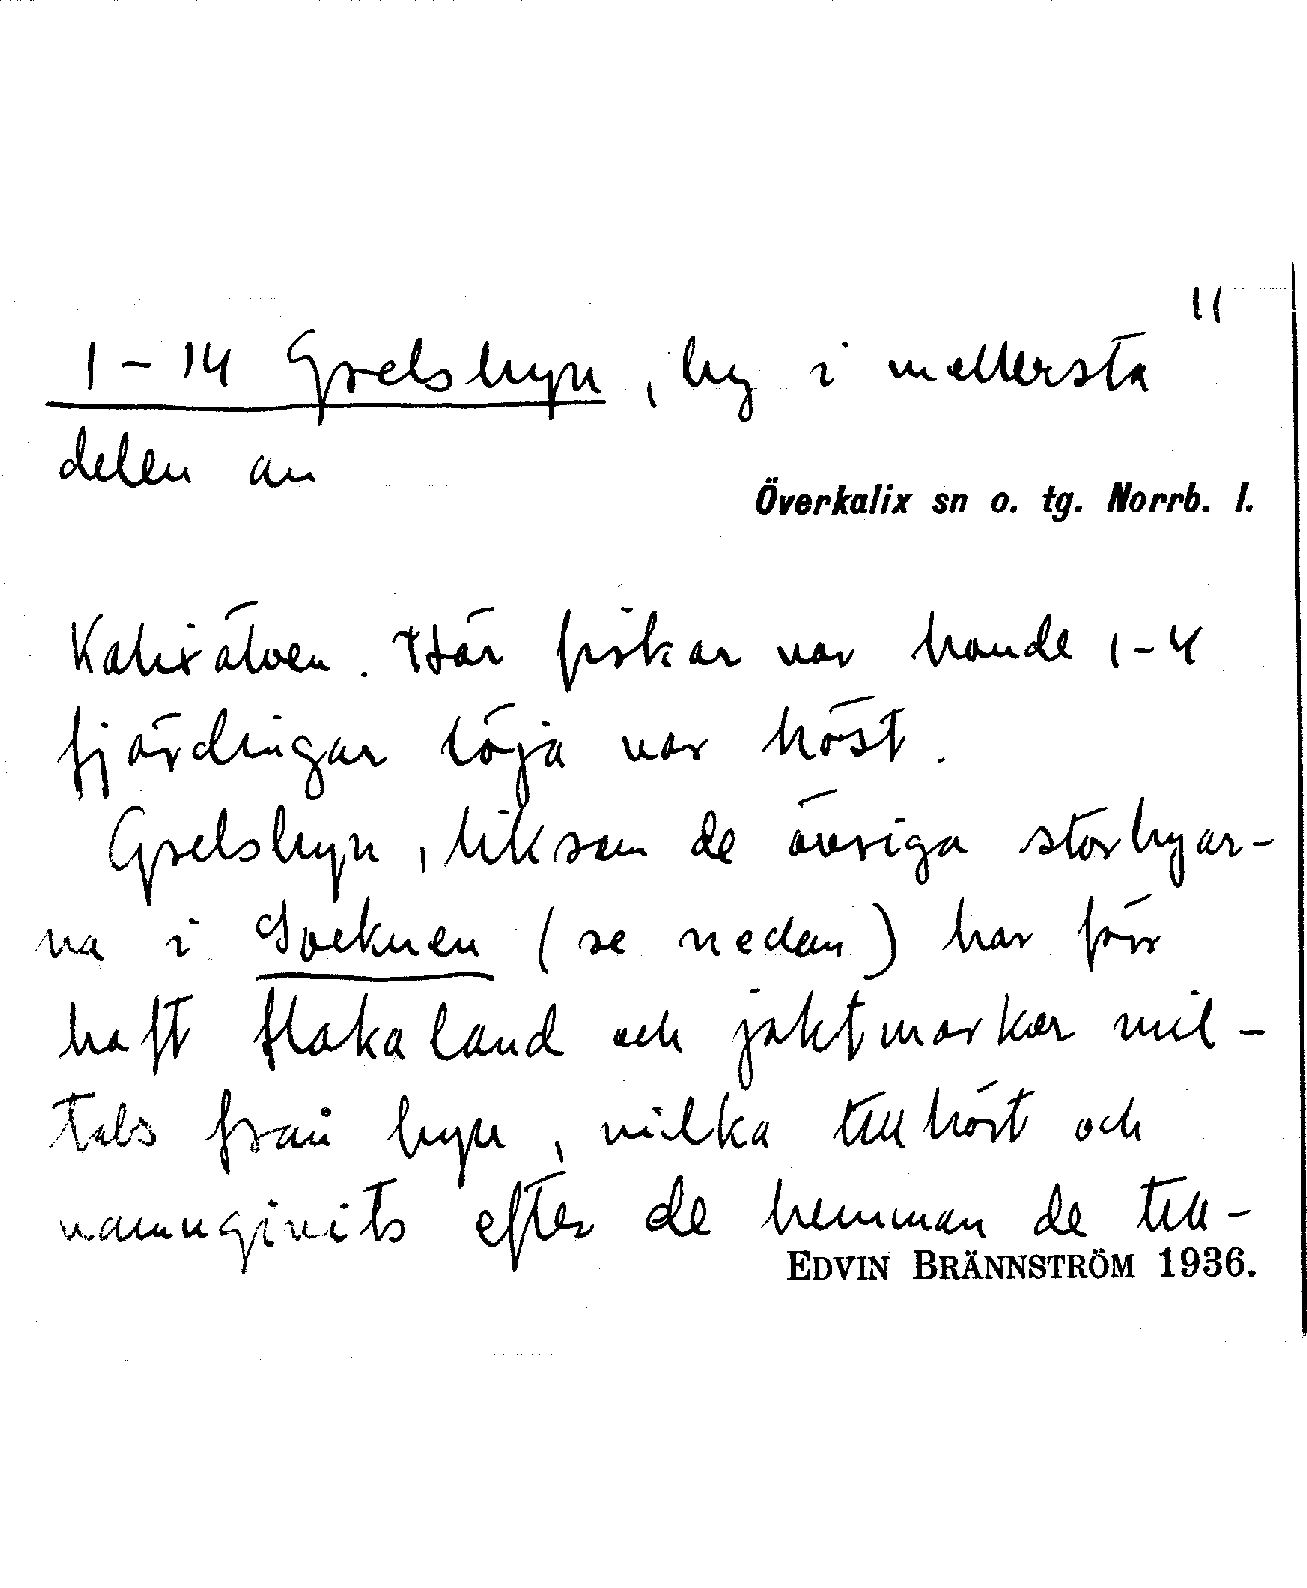 11
1 - 14 Grelsbyn, by i mellersta
delen av
Överkalix sn o. tg. Norrb. l.
Kalixälven. Här fiskar var bonde 1-4
fjärdingar löja var höst.
Grelsbyn, liksom de övriga storbyar-
na i Socknen (se nedan) har förr
haft flakaland och jaktmarker mil-
tals från byn, vilka tillhört och
namngivits efter de hemman de till-
EDVIN BRÄNNSTRÖM 1936.